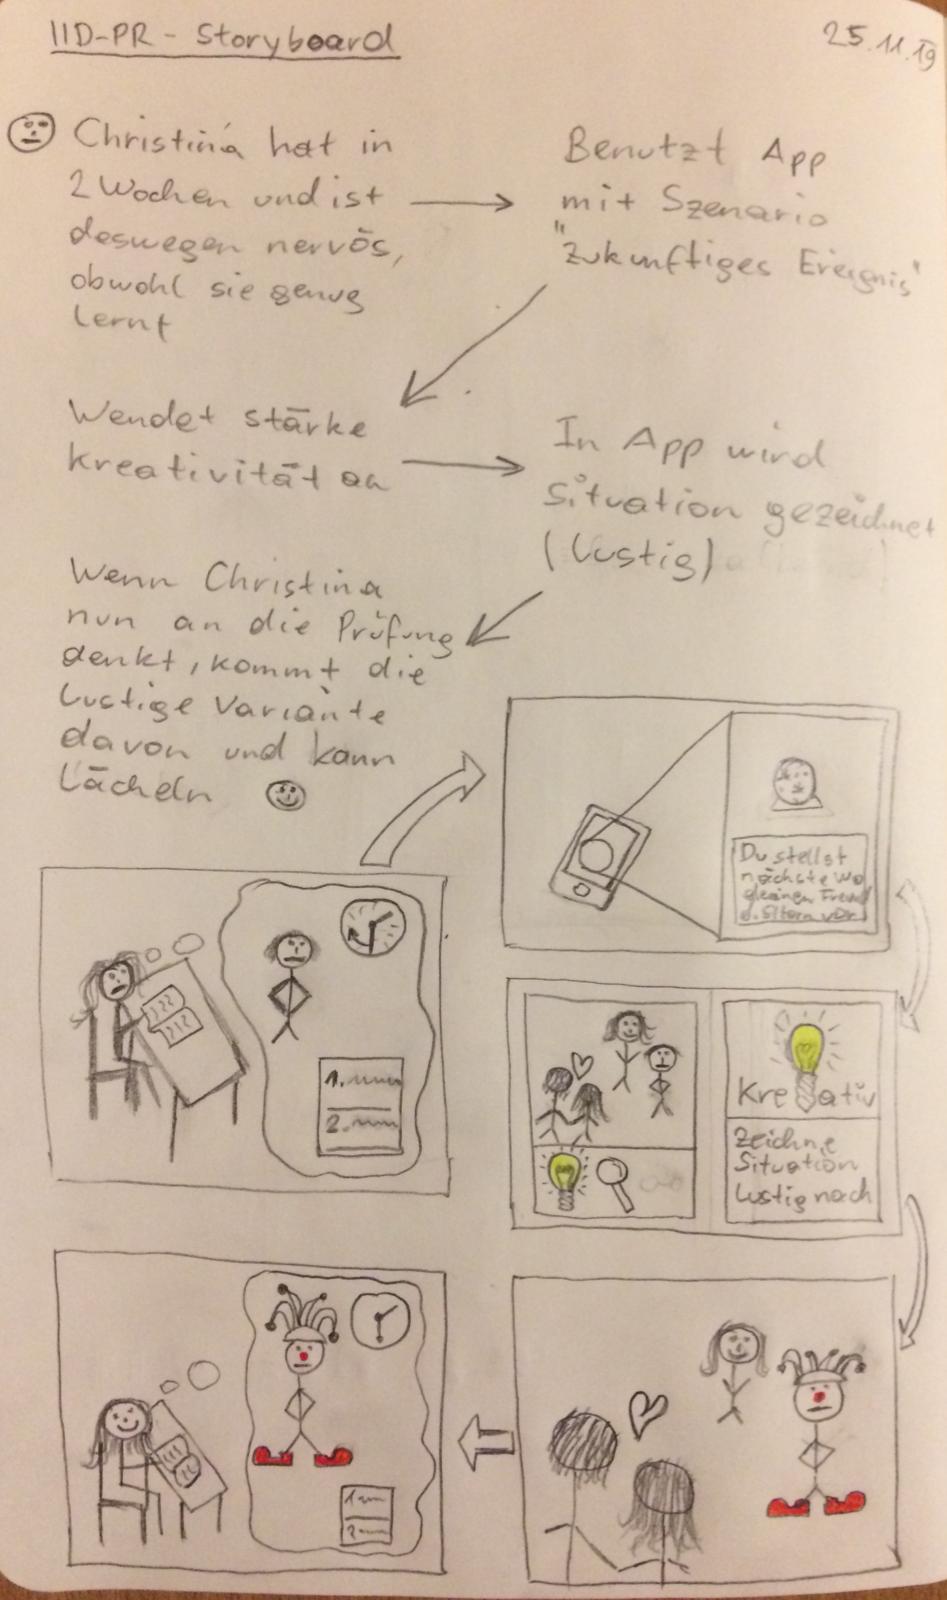 IID-PR - Storyboard
25.11.19
Christina hat in
2 Wochen und ist
deswegen nervös,
obwohl sie genug
lernt
Benutzt App
mit Szenario
"Zukunftiges Ereignis"
Wendet stärke
Kreativität an
In App wird
Situation gezeichnet
(lustig)
Wenn Christina
nun an die Prüfung
denkt, kommt die
lustige Variante
davon und kann
lächeln
Du stellst
nächste Wo
deinen Freund
d. Eltern vor
1.
2.
Kreativ
Zeichne
Situation
lustig nach
1
2